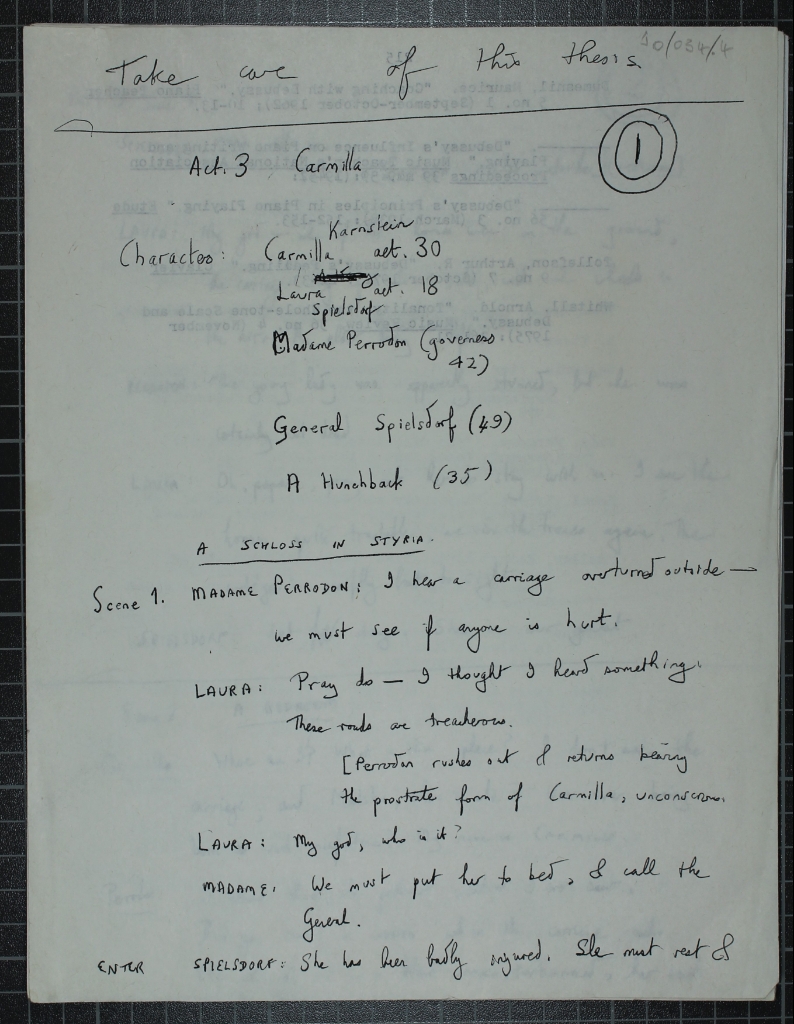 Take care of this thesis.
Act. 3 Carmilla
1
Karnstein
Characters: Carmilla aet. 30
Laura aet. 18
Spielsdorf
Madame Perrodon (governess
42)
General Spielsdorf (49)
A Hunchback (35)
A SCHLOSS IN STYRIA.
Scene 1. MADAME PERRODON: I hear a carriage overturned outside —
we must see if anyone is hurt.
LAURA: Pray do — I thought I heard something.
These roads are treacherous.
[Perrodon rushes out & returns bearing
the prostrate form of Carmilla, unconscious.
LAURA: My god, who is it?
MADAME: We must put her to bed, & call the
General.
ENTER SPIELSDORF: She has been badly injured. She must rest &